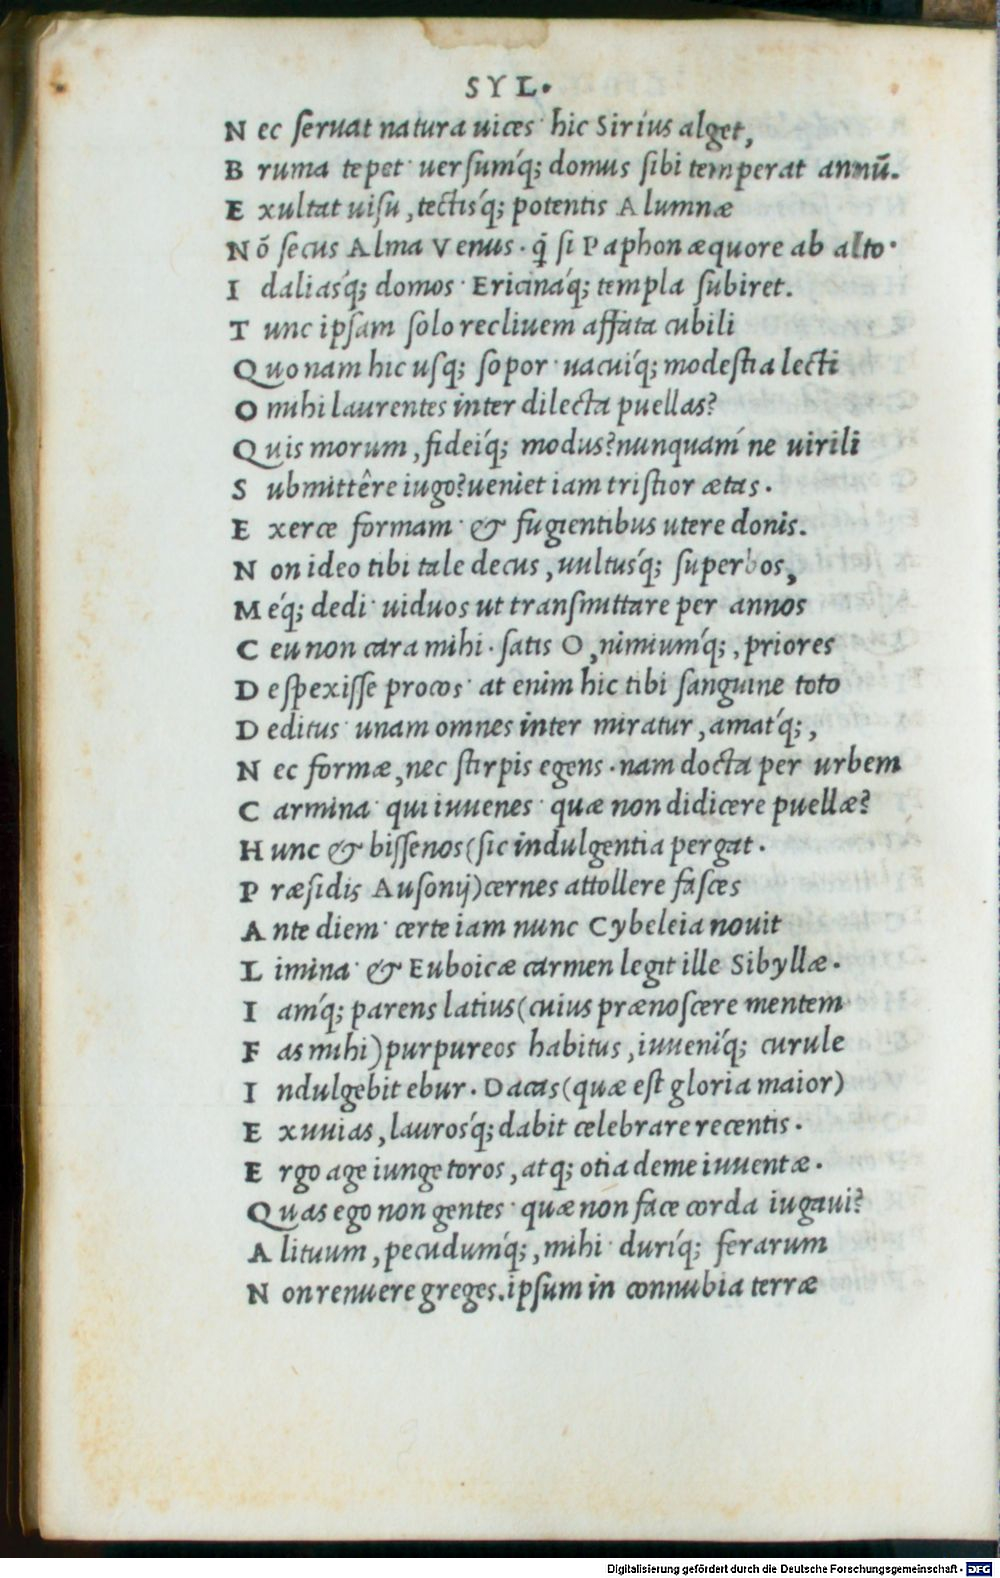 SYL.
N ec seruat natura uices· hic Sirius alget,
B ruma tepet· uersumq́; domus sibi temperat annū.
E xultat uisu, tectisq́; potentis Alumnæ
N ō secus Alma Venus· q̄ si Paphon æquore ab alto·
I daliasq́; domos· Ericinaq́; templa subiret.
T unc ipsam solo recliuem affata cubili
Q uonam hic usq; sopor· uacuiq́; modestia lecti
O mihi laurentes inter dilecta puellas?
Q uis morum, fideiq́; modus? nunquam ne uirili
S ubmittêre iugo? ueniet iam tristior ætas.
E xerce formam· & fugientibus utere donis.
N on ideo tibi tale decus, uultusq́; superbos,
M eq́; dedi· uiduos ut transmittare per annos
C eu non cara mihi· satis O, nimiumq́;, priores
D espexisse procos· at enim hic tibi sanguine toto
D editus· unam omnes inter miratur, amatq́;,
N ec formæ, nec stirpis egens· nam docta per urbem
C armina· qui iuuenes· quæ non didicere puellæ?
H unc & bissenos (sic indulgentia pergat.
P ræsidis Ausonij) cernes attollere fasces
A nte diem· certe iam nunc Cybeleia nouit
L imina· & Euboicæ carmen legit ille Sibyllæ.
I amq́; parens latius (cuius prænoscere mentem
F as mihi) purpureos habitus, iuueniq́; curule
I ndulgebit ebur. Dacas (quæ est gloria maior)
E xuuias, laurosq́; dabit celebrare recentis.
E rgo age iunge toros, atq; otia deme iuuentæ.
Q uas ego non gentes· quæ non face corda iugaui?
A lituum, pecudumq́;, mihi· duriq́; ferarum
N on renuere greges. ipsum in connubia terræ
Digitalisierung gefördert durch die Deutsche Forschungsgemeinschaft - DFG